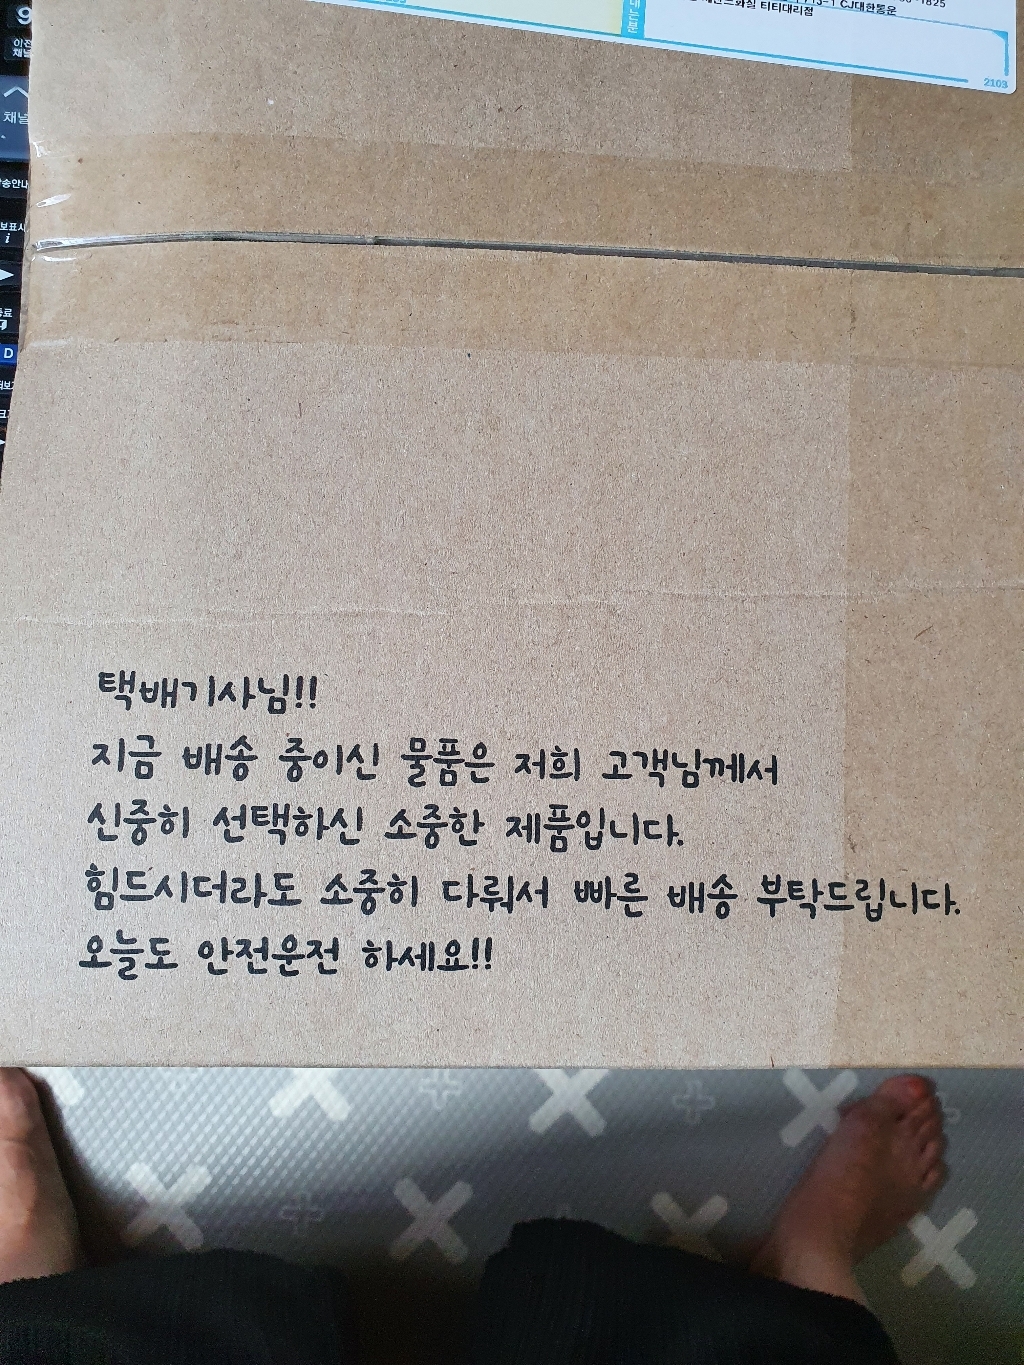 -1825
CJ대한통운
티티대리점
2103
9
이전
채널
채널
i
D
택배기사님!!
지금 배송 중이신 물품은 저희 고객님께서
신중히 선택하신 소중한 제품입니다.
힘드시더라도 소중히 다뤄서 빠른 배송 부탁드립니다.
오늘도 안전운전 하세요!!